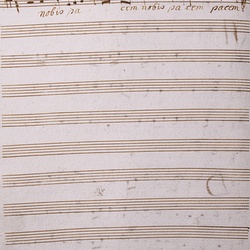 nobis pa cem nobis pa cem pacem